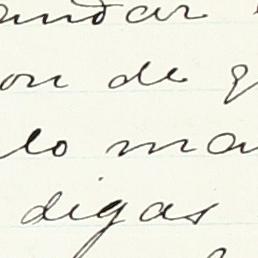 andar
on de q
lo man
digas